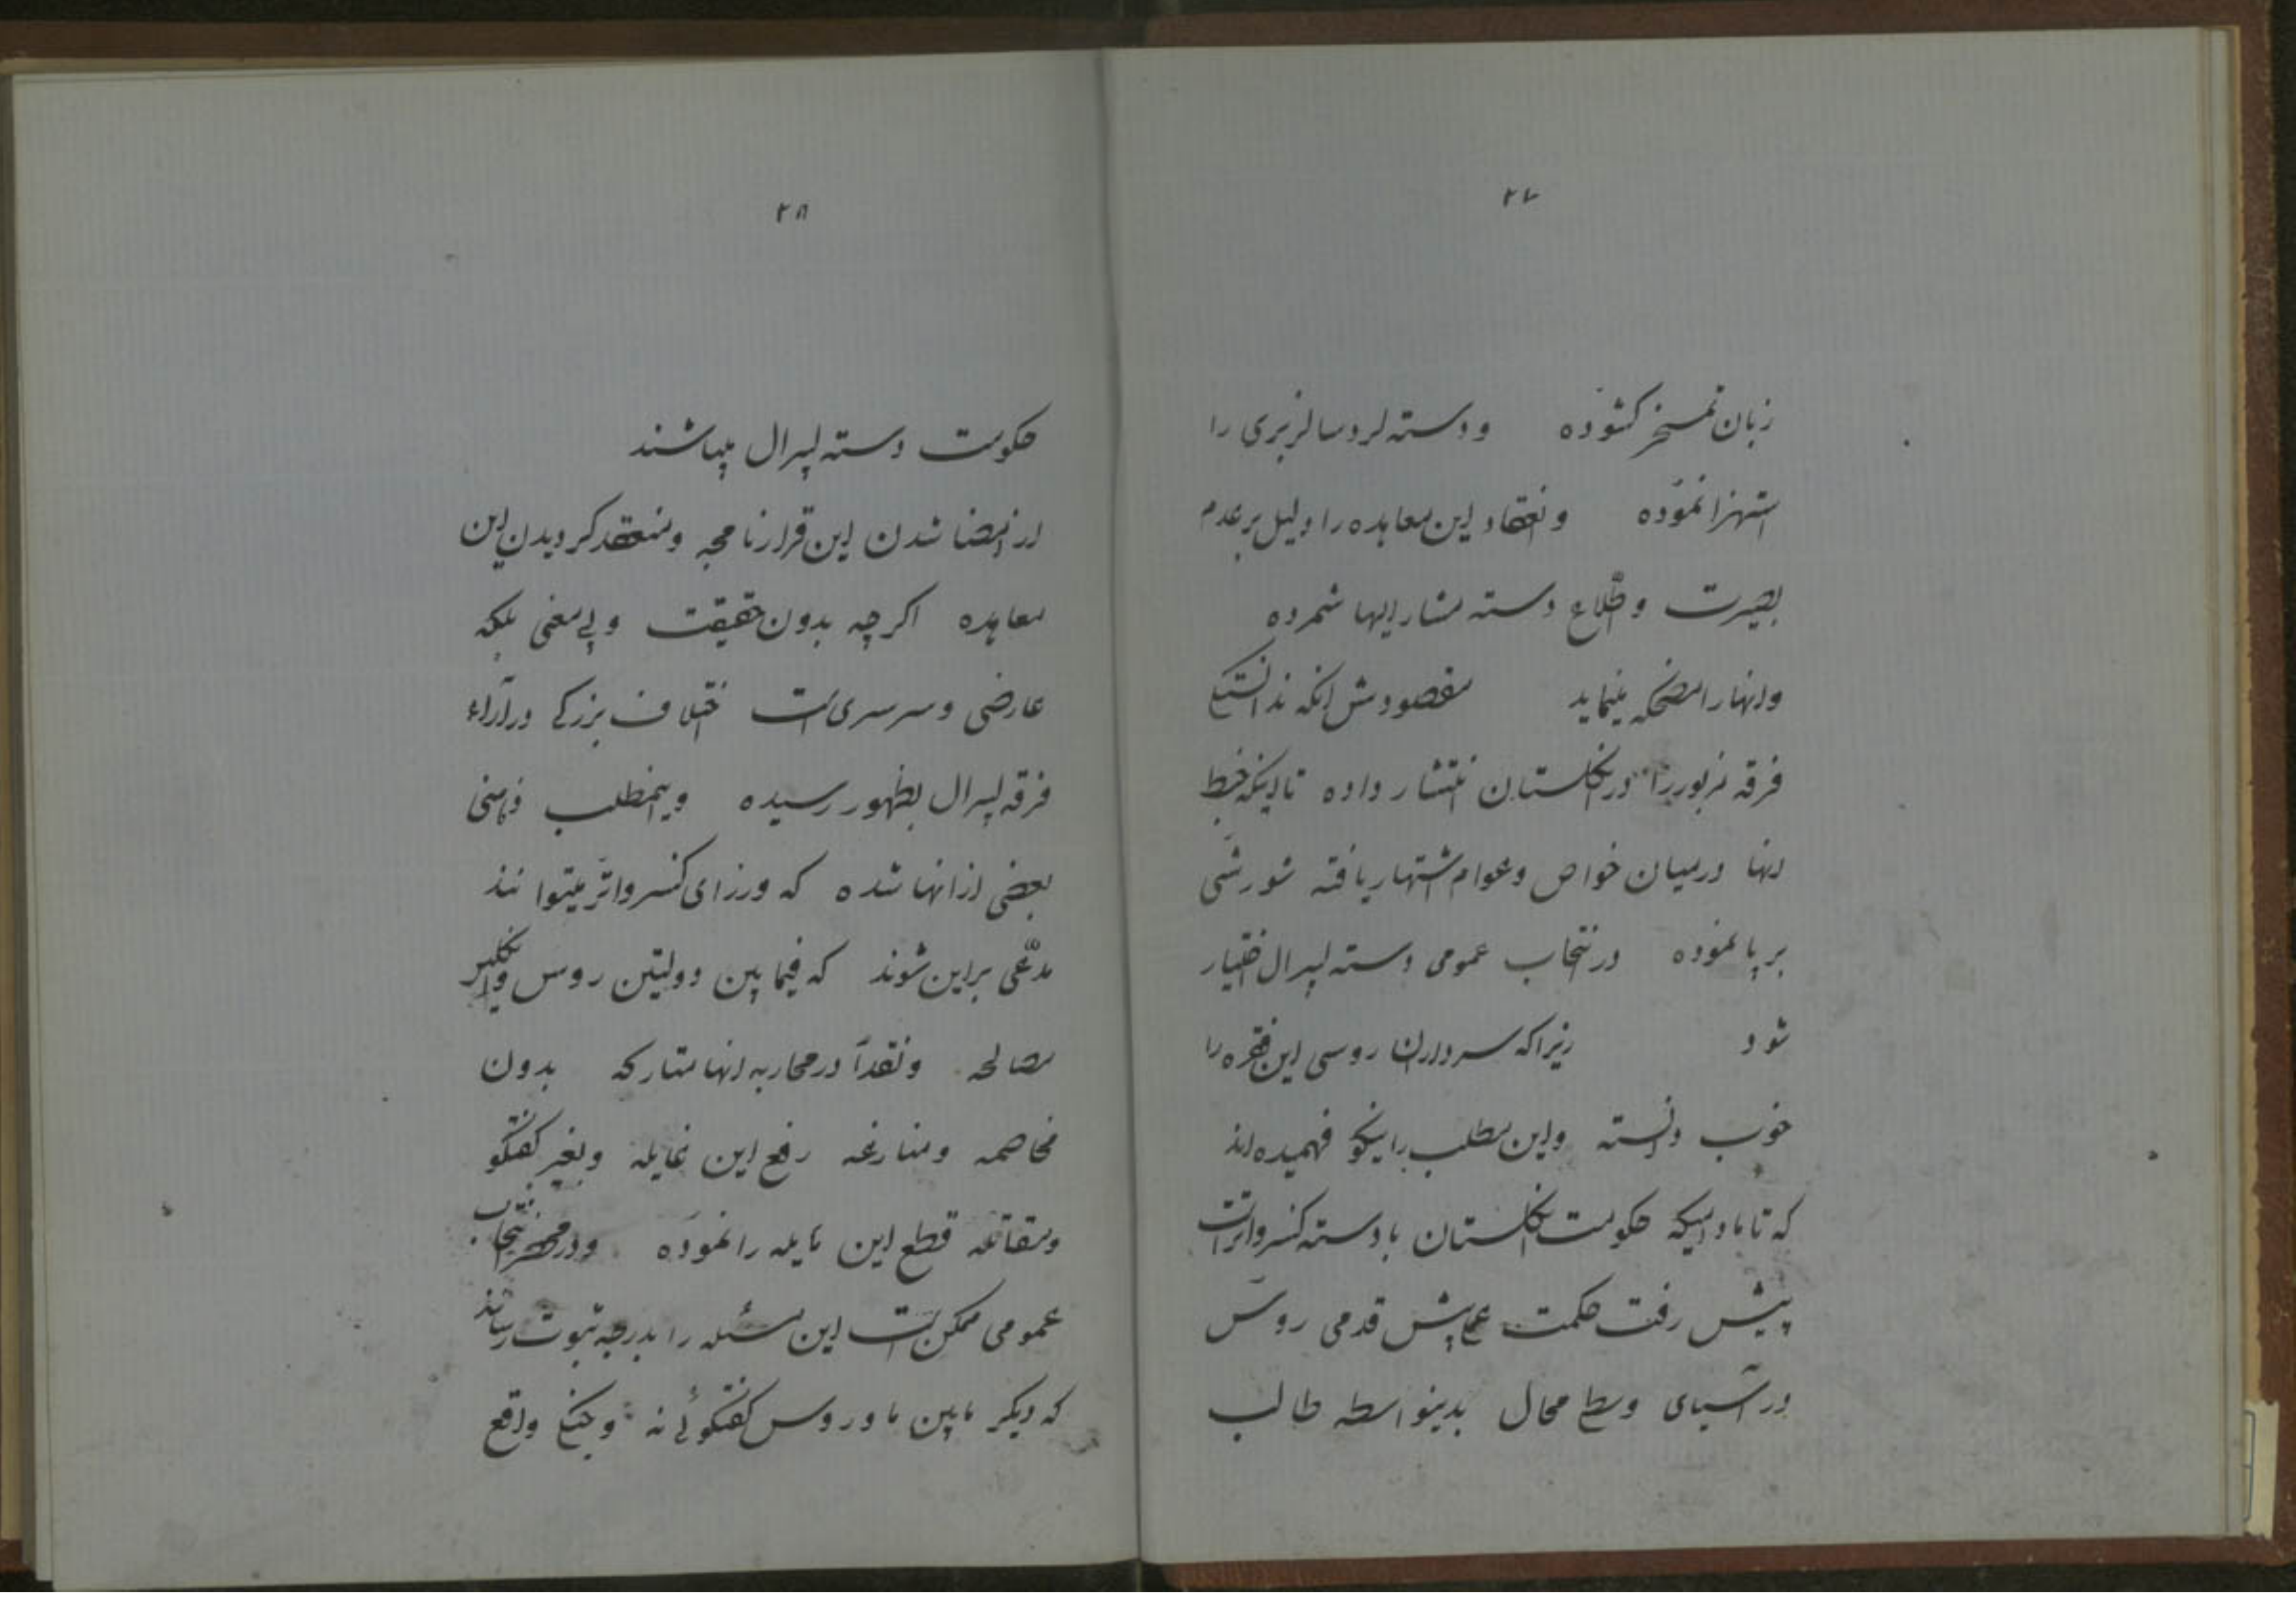 ۲۷
زبان تمسخر کشوده ودسته لرد سالزبری را
استهزا نموده وانعقاد این معاهده را دلیل بر عدم
بصیرت واطلاع دسته مشار الیها شمرده
وانها را مضحکه مینماید مقصودش انکه ندانستکی
فرقه مزبور را در انکلستان انتشار داده تا اینکه خبط
انها در میان خواص وعوام اشتهار یافته شورشی
بر پا نموده در انتخاب عمومی دسته لیبرال اختیار
شود زیرا که سرداران روسی این فقره را
خوب دانسته واین مطلب را نیکو فهمیده اند
که تا مادامیکه حکومت انکلستان با دسته کنسرواتر است
پیش رفت حکمت پیش قدمی روس
در آسیای وسطی محال بدینواسطه طالب
۲۸
حکومت دسته لیبرال میباشند
از امضا شدن این قرارنامچه ومنعقد کردیدن این
معاهده اکر چه بدون حقیقت وبی معنی بلکه
عارضی وسرسری است اختلاف بزرکی در آراء
فرقه لیبرال بظهور رسیده واینمطلب
بعضی از انها شده که وزرای کنسرواتر میتوانند
مدّعی براین شوند که فیما بین دولتین روس وانکلیس
مصالحه ونقداً در محاربه انها متارکه بدون
مخاصمه ومنازعه رفع این غایله وبغیر کفتکو
ومقاتله قطع این مایله را نموده ودر انتخاب
عمومی ممکن است این مسئله را بدرجه ثبوت رسانند
که دیکر مابین ما و روس کفتکوئی نه وجنکی واقع